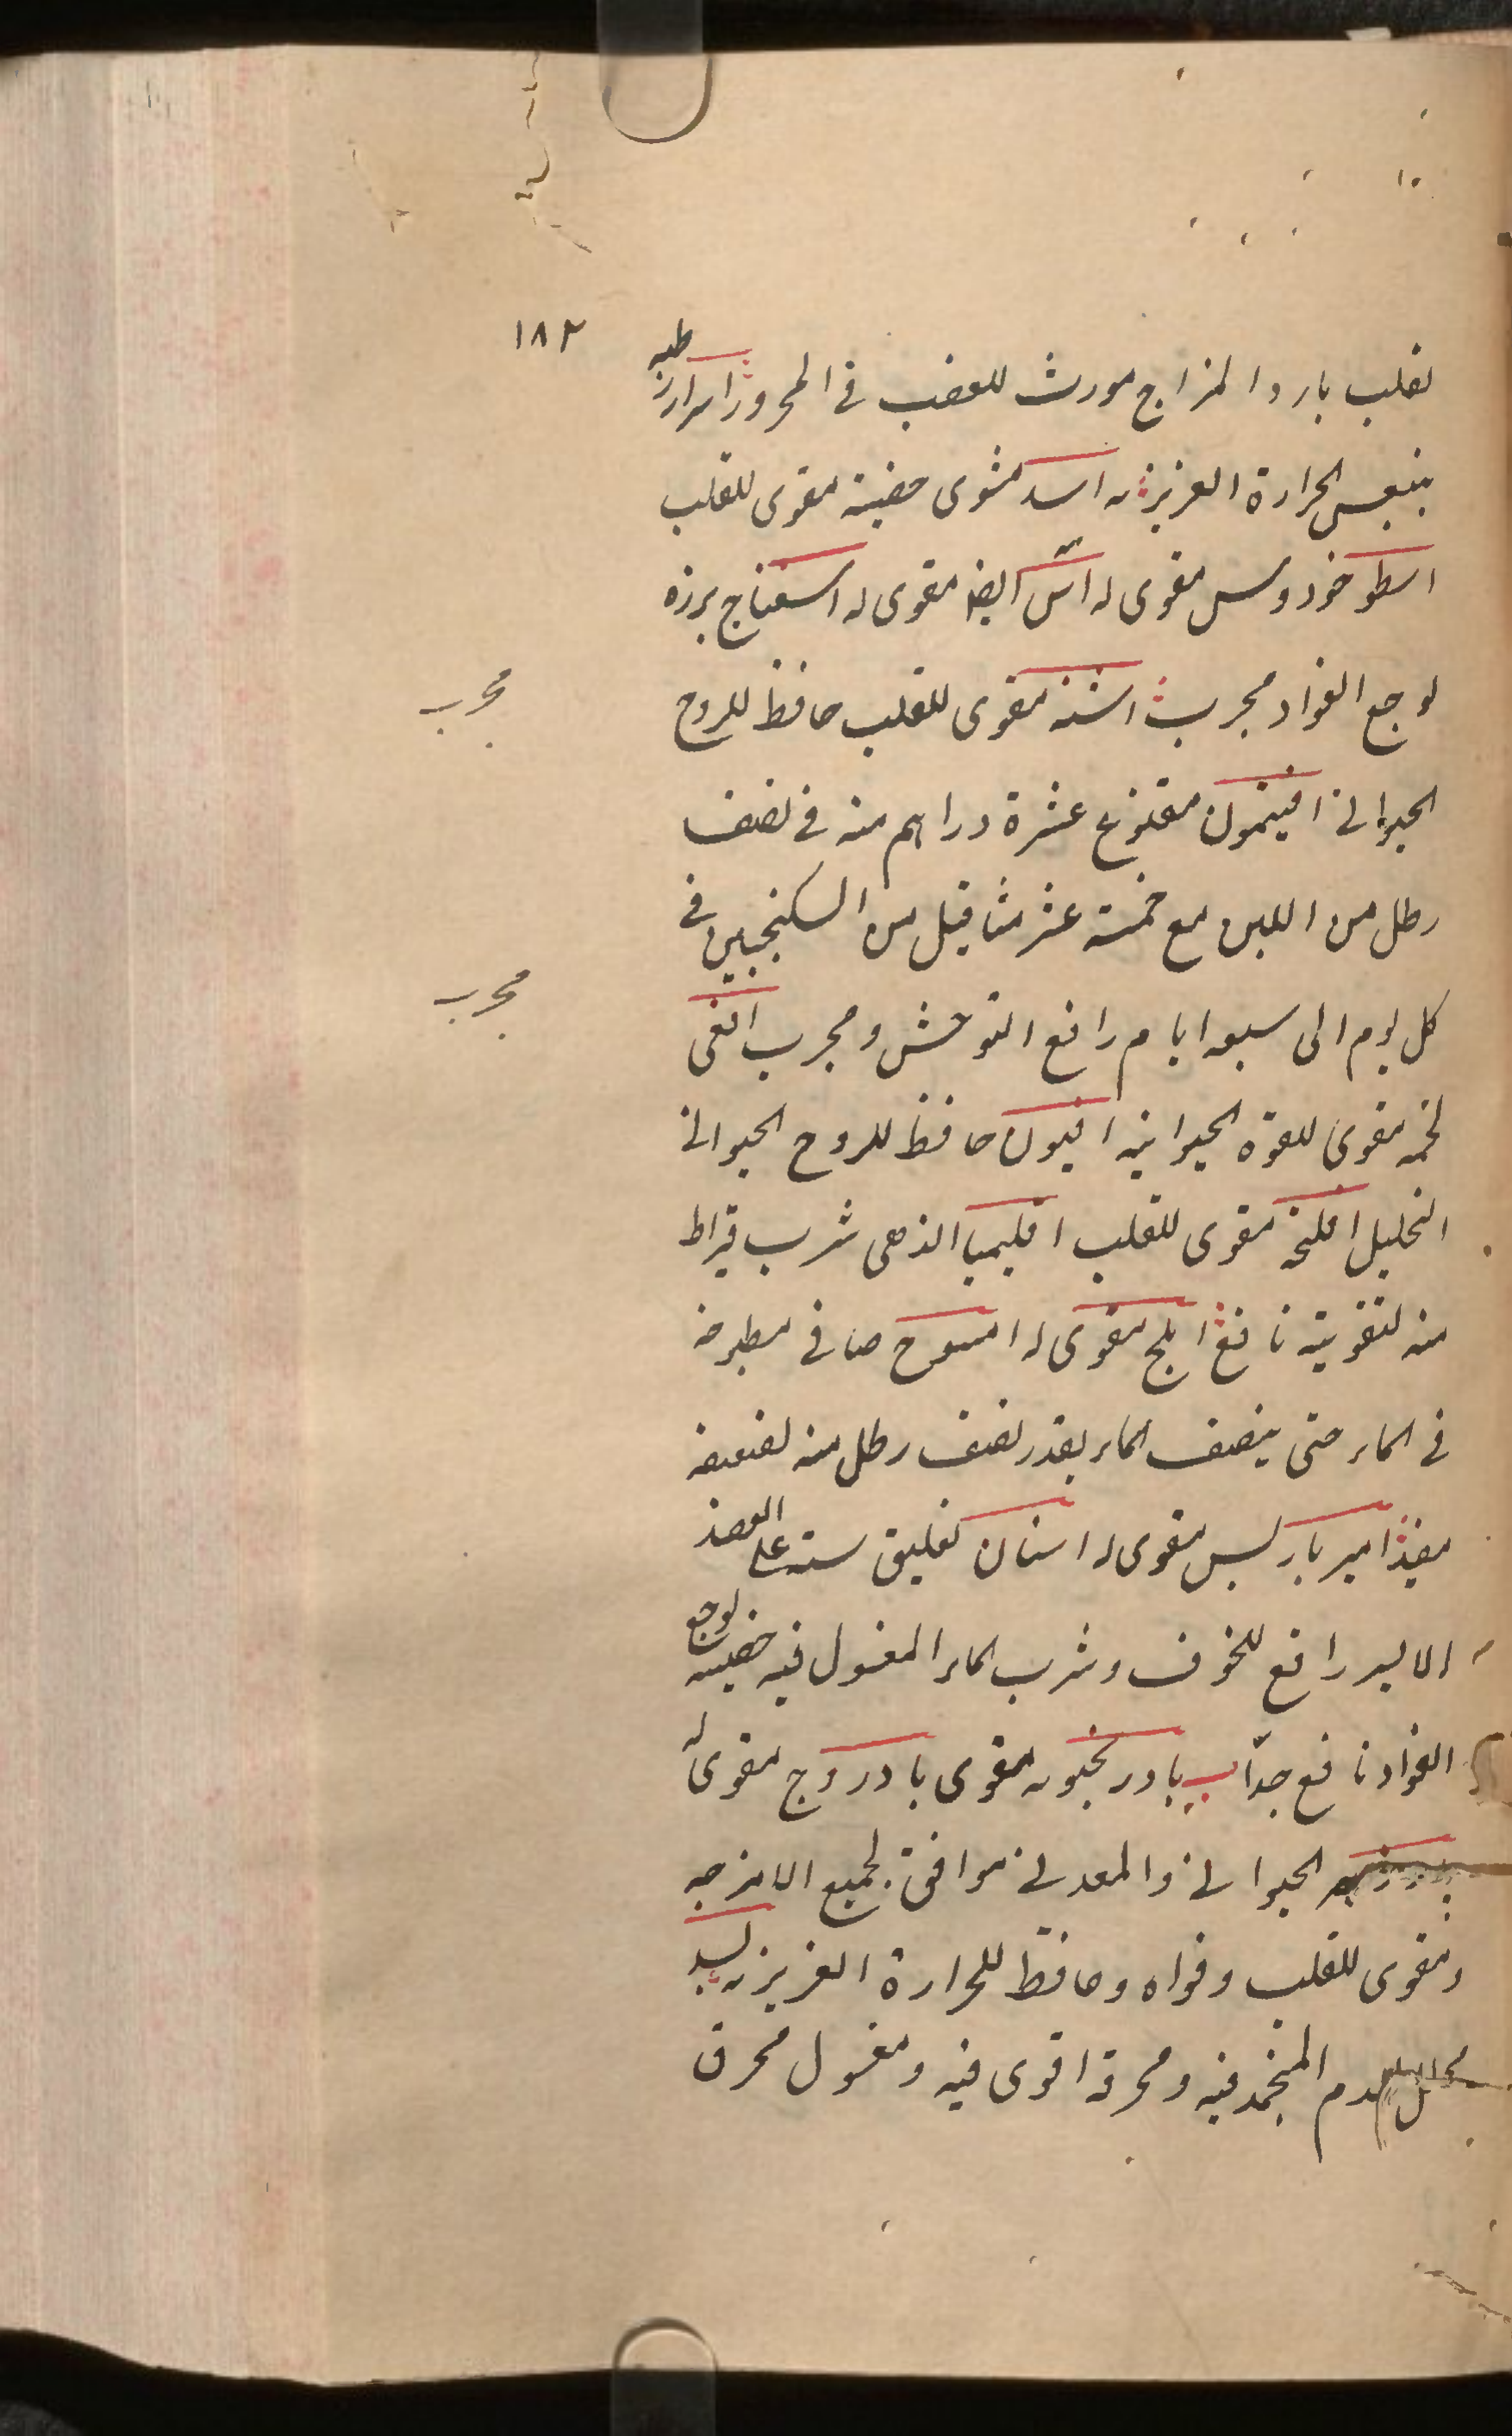 ١٨٢
لقلب بارد المزاج مورث للغضب في المحرور ارز رطبه
ينبعس الحرارة الغريزيه اسد مشوى خصيته مقوى للقلب
اسطوخودوس مقوى له اس ايضا مقوى له اسفناج بزره
لوجع الفواد مجرب اشنه مقوى للقلب حافظ للروح
مجرب
الحيوانى افيتمون منقوع عشرة دراهم منه في نصف
رطل من اللبن مع خمسة عشر مثاقيل من السكنجبين في
كل يوم الى سبعه ايام رافع التوحش ومجرب افعى
مجرب
لحمه مقوى للقوه الحيوانيه افيون حافظ للروح الحيوانى
التحليل افلنجه مقوى للقلب اقليميا الذهبى شرب قيراط
منه لتقويته نافع املج مقوى له امسوح صافى مطبوخه
في الماء حتى ينصف الماء بقدر نصف رطل منه لضعفه
مفيد اميرباريس مقوى له اسنان تعليق سنه على العضد
الايسر رافع للخوف وشرب الماء المغسول فيه خصيته لوجع
الفواد نافع جدّا ب بادرنجبويه مقوى بادروج مقوى له
الحيوانى والمعدنى موافق لجميع الامزجه
ومقوى للقلب وقواه وحافظ للحرارة الغريزيه بسد
محلل لدم المنجمد فيه ومحرقه اقوى فيه ومغسول محرق